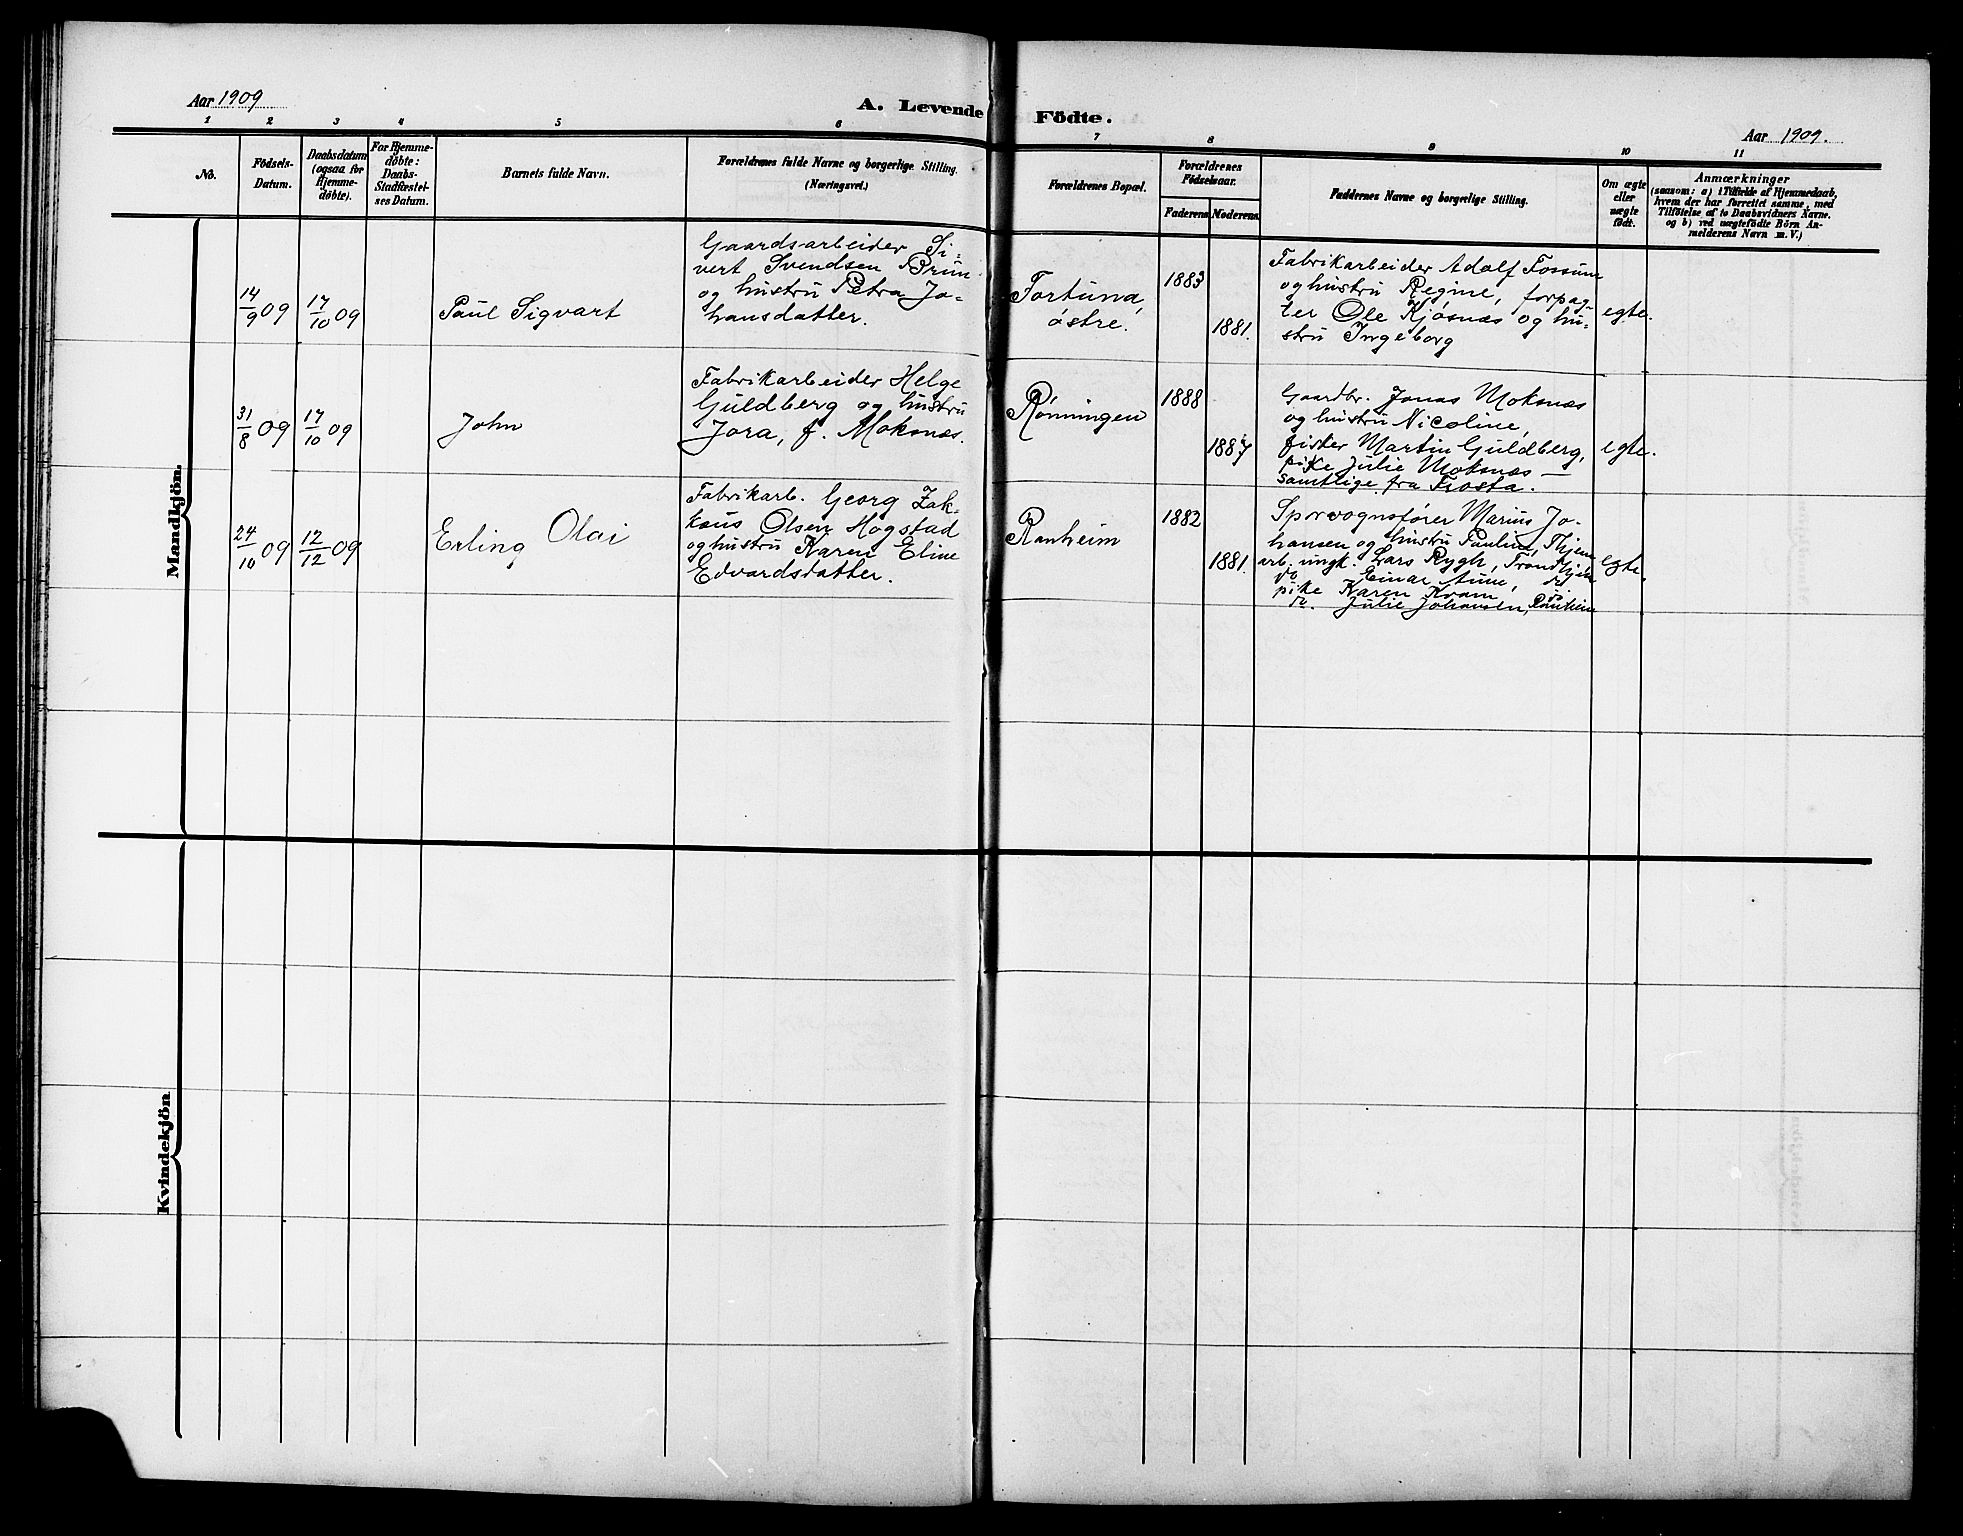 Aar 1909
A. Levende Födte.
Aar 1909.
1 2 3 4 5 6 7 8 9 10 11
No.
Födsels-
Datum.
Daabsdatum
(ogsaa for
Hjemme-
døbte).
For Hjemme-
døbte:
Daabs-
Stadfæstel-
ses Datum.
Barnets fulde Navn.
Forældrenes fulde Navne og borgerlige Stilling.
(Næringsvei.)
Forældrenes Bopæl.
Forældrenes
Fødselsaar.
Faderens
Moderens
Faddernes Navne og borgerlige Stilling.
Om ægte
eller
uægte
født.
Anmærkninger
(saasom: a) i Tilfælde af Hjemmedaab,
hvem der har forrettet samme, med
Tilføielse af to Daabsvidners Navne.
og b) ved uægtefødte Börn An-
melderens Navn m.V.)
Mandkjön.
14/9 09
17/10 09
Paul Sigvart
Gaardsarbeider Si-
vert Svendsen Brun
og hustru Petra Jo-
hansdatter.
Fortuna,
østre.
1883
1881.
Fabrikarbeider Adolf Fossum
og hustru Regine, forpag-
ter Ole Kjøsnæs og hu-
stru Ingeborg
egte.
31/8 09
17/10 09
John
Fabrikarbeider Helge
Guldberg og hustru
Jora, f. Moksnæs.
Rønningen
1888
1887
Gaardbr. Jonas Moksnæs
og hustru Nicoline,
fisker Martin Guldberg,
pike Julie Moksnæs —
samtlige fra Frosta.
egte.
24/10 09
12/12 09
Erling Olai
Fabrikarb. Georg Zak-
kæus Olsen Hogstad
og hustru Karen Eline
Edvardsdatter.
Ranheim
1882
1881.
Sporvognsfører Marius Jo-
hansen og hustru Pauline, Thjem
arb. ungk. Lars Rygh, Trondhjem
do Einar Aune, do
pike Karen Kvam, do
do. Julie Johansen, Ranheim
egte.
Kvindekjön